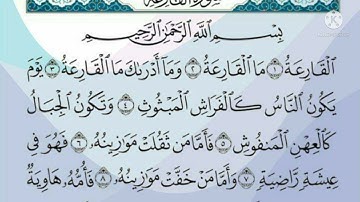 سُورَةُ القَارِعَةِ
بِسْمِ اللَّهِ الرَّحْمَٰنِ الرَّحِيمِ
الْقَارِعَةُ ١ مَا الْقَارِعَةُ ٢ وَمَا أَدْرَىٰكَ مَا الْقَارِعَةُ ٣ يَوْمَ
يَكُونُ النَّاسُ كَالْفَرَاشِ الْمَبْثُوثِ ٤ وَتَكُونُ الْجِبَالُ
كَالْعِهْنِ الْمَنفُوشِ ٥ فَأَمَّا مَن ثَقُلَتْ مَوَٰزِينُهُۥ ٦ فَهُوَ فِي
عِيشَةٍ رَّاضِيَةٍ ٧ وَأَمَّا مَنْ خَفَّتْ مَوَٰزِينُهُۥ ٨ فَأُمُّهُۥ هَاوِيَةٌ